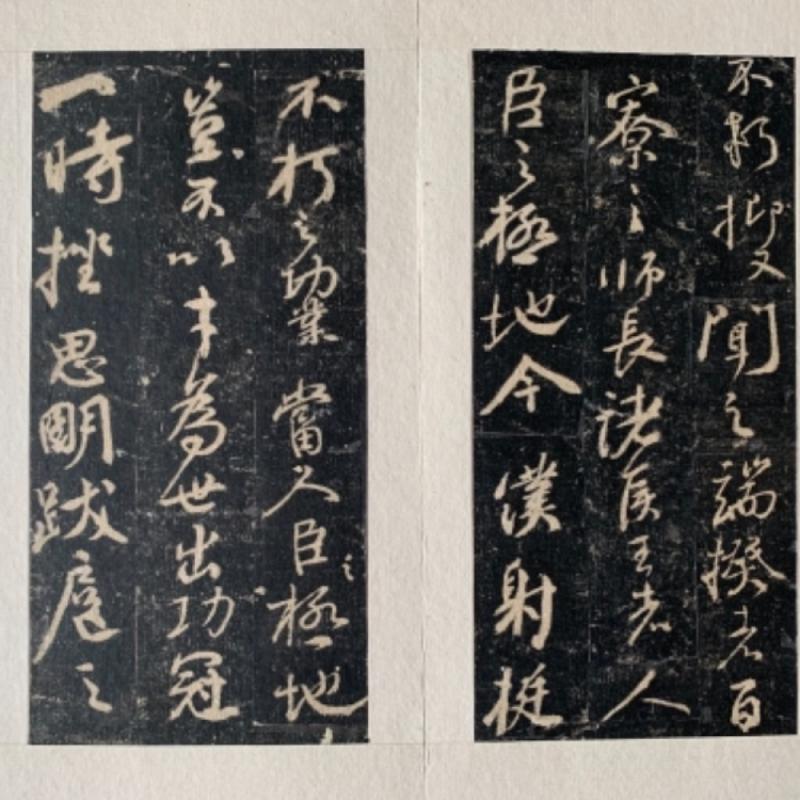 不朽抑又聞之端揆者百
寮之師長諸侯王者人
臣之極地今僕射挺
不朽之功業當人臣之極地
豈不以才為世出功冠
一時挫思明跋扈之